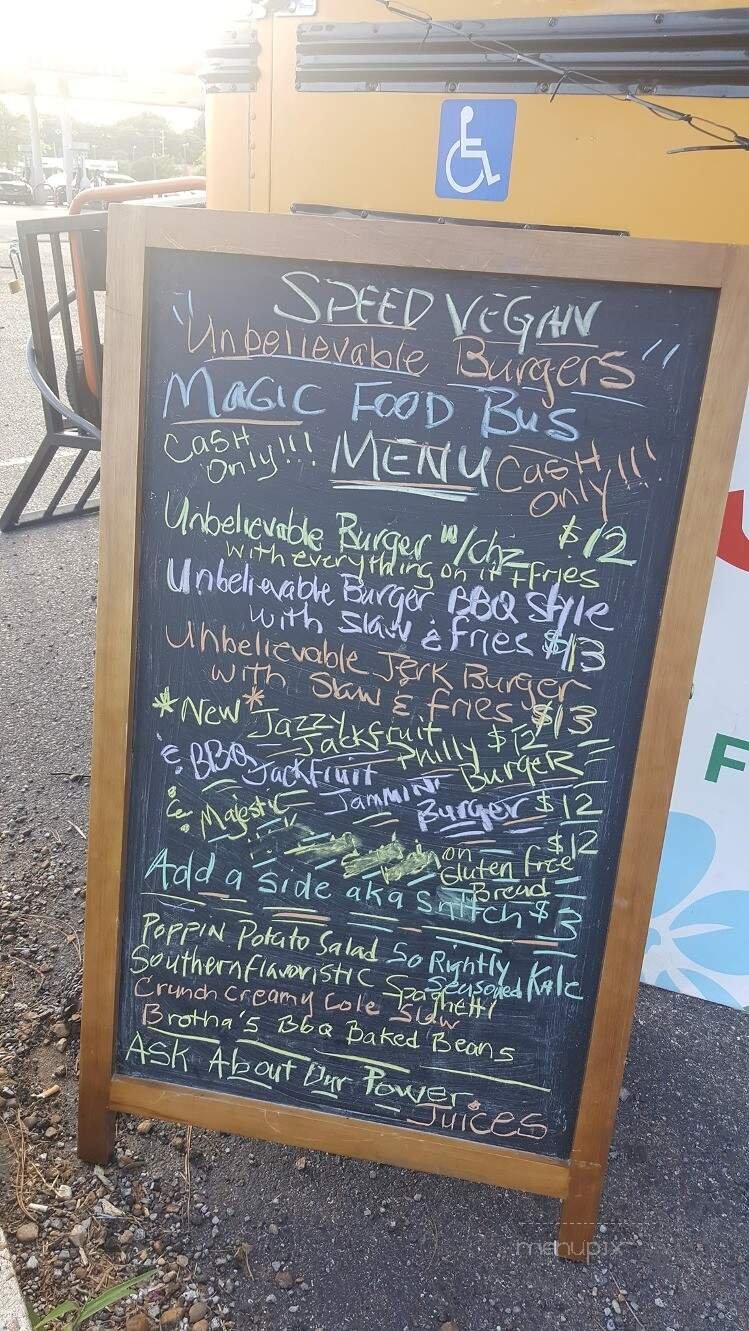 SPEED VEGAN
"Unbelievable Burgers"
MAGIC FOOD BUS
CASH Only!!! MENU CASH Only!!!
Unbelievable Burger w/chz $12
with everything on it + fries
Unbelievable Burger BBQ Style
with Slaw & fries $13
Unbelievable Jerk Burger
with Slaw & fries $13
*New* Jazzy Jackfruit Philly $12 Burger
& BBQ Jackfruit Jammin Burger $12
& Majestic $12
on Gluten free Bread
Add a side aka Snitch $3
Poppin Potato Salad So Rightly Seasoned Kale
Southernflavoristic Spaghetti
Crunch Creamy Cole Slaw
Brotha's BBQ Baked Beans
ASK About Our Power Juices
F
menupix